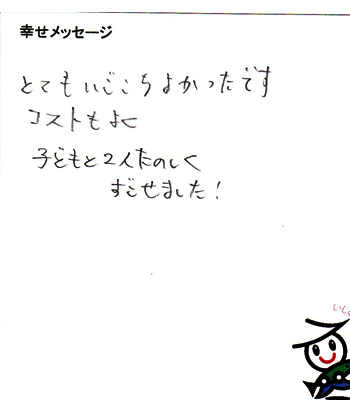 幸せメッセージ
とてもいごこちよかったです
コストもよく
子どもと2人たのしく
すごせました!